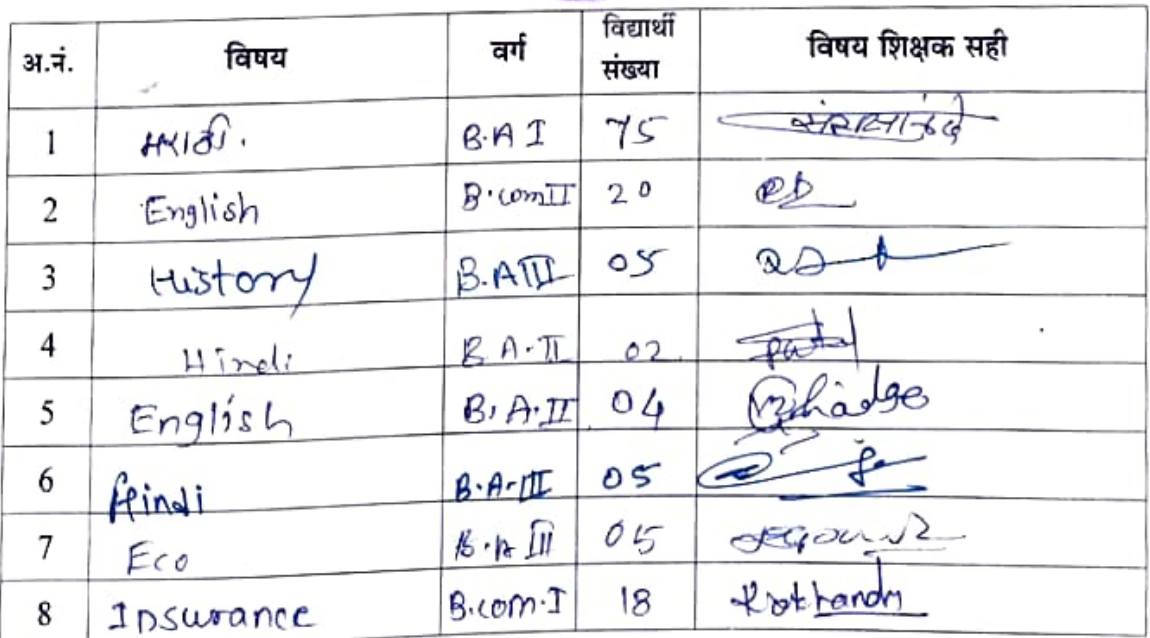 अ.नं. विषय वर्ग विद्यार्थी संख्या विषय शिक्षक सही
1 मराठी. B.A I 75
2 English B.com II 20
3 History B.A III 05
4 Hindi B A-II 02
5 English B.A.II 04
6 Hindi B.A-III 05
7 Eco B.A III 05
8 Insurance B.com.I 18